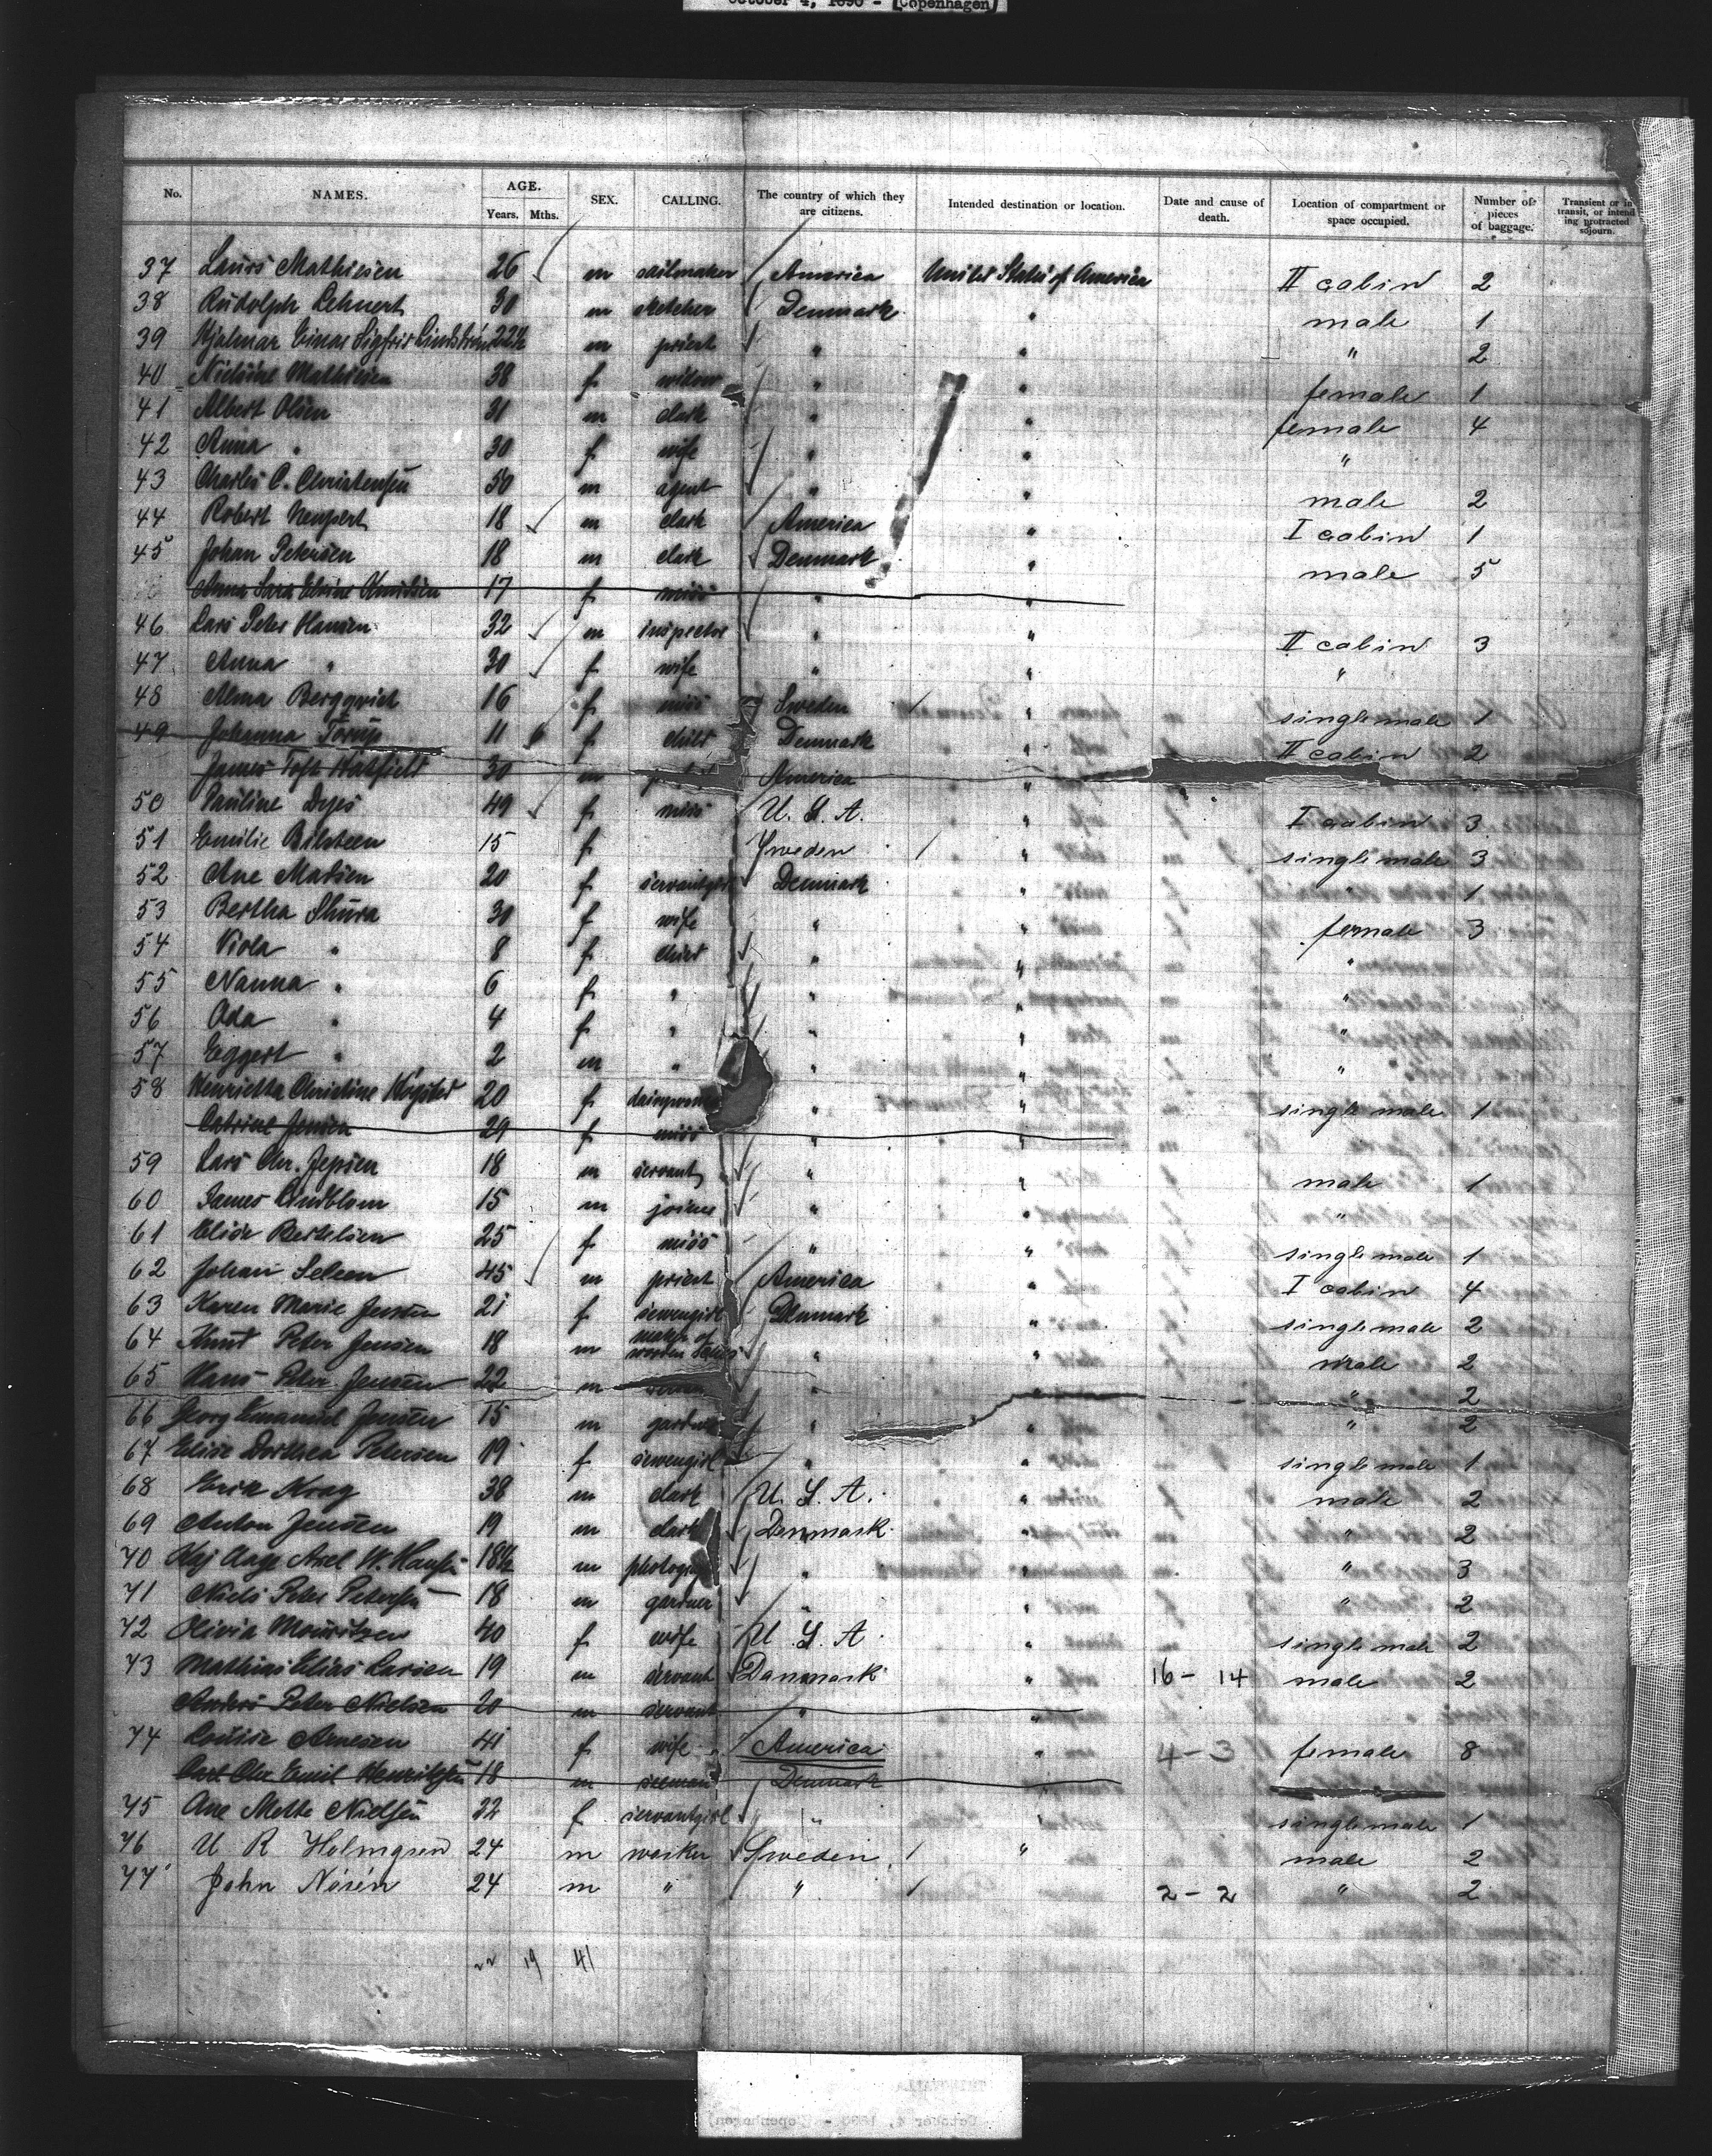 October 4, 1890 - [Copenhagen]
No. NAMES. AGE. Years. Mths. SEX. CALLING. The country of which they are citizens. Intended destination or location. Date and cause of death. Location of compartment or space occupied. Number of pieces of baggage. Transient or in transit, or intending protracted sojourn.
37 Laurs Mathiesen 26 m sailmaker America United States of America II cabin 2
38 Rudolph Lehnert 30 m sketcher Denmark " male 1
39 Hjalmar Einar Sigfrid Lindström 22½ m priest " " " 2
40 Nielsine Mathiesen 38 f widow " " female 1
41 Albert Olsen 31 m clark " " female 4
42 Anna " 30 f wife " " "
43 Charles C. Christensen 50 m agent " " male 2
44 Robert Neupert 18 m clark America " I cabin 1
45 Johan Petersen 18 m clark Denmark " male 5
Anna Sara Elvine Knudsen 17 f miss " "
46 Lars Peter Hansen 32 m inspector " " II cabin 3
47 Anna " 30 f wife " " "
48 Alma Bergqvist 16 f miss Sweden " single male 1
49 Johanna Torup 11 f child Denmark " II cabin 2
James Toft Hatfield 30 m America "
50 Pauline Dyes 49 f miss U. S. A. " I cabin 3
51 Emilie Bilsteen 15 f Sweden " single male 3
52 Ane Madsen 20 f servantgirl Denmark " " 1
53 Bertha Shura 30 f wife " " female 3
54 Viola " 8 f child " " "
55 Nanna " 6 f " " " "
56 Oda " 4 f " " " "
57 Eggert " 2 m " " " "
58 Henrietta Christine Högsted 20 f dairywoman " " single male 1
Catrine Jensen 29 f miss " "
59 Lars Chr. Jepsen 18 m servant " " male 1
60 James Lindblom 15 m joiner " " "
61 Elise Bertelsen 25 f miss " " single male 1
62 Johan Selsen 45 m priest America " I cabin 4
63 Karen Marie Jensen 21 f sewengirl Denmark " single male 2
64 Knut Peter Jensen 18 m maker of wooden shoes " " male 2
65 Hans Peter Jensen 22 m " " " 2
66 Georg Emanuel Jensen 15 m gardner " " " 2
67 Elise Dorthea Petersen 19 f sewengirl " " single male 1
68 Erik Krag 38 m clark U. S. A. " male 2
69 Anton Jensen 19 m clark Denmark " " 2
70 Kaj Aage Axel W. Hansen 18½ m photograph " " " 3
71 Niels Peter Petersen 18 m gardner " " " 2
72 Olivia Mouritzen 40 f wife U. S. A. " single male 2
73 Mathias Elias Larsen 19 m servant Danmark " 16 - 14 male 2
Anders Peter Nielsen 20 m servant " "
74 Louise Arnesen 41 f wife America " 4 - 3 female 8
Carl Chr Emil Henritzen 18 m seeman Denmark
75 Ane Mette Nielsen 22 f servantgirl " " single male 1
76 U R Holmgren 24 m worker Sweden " male 2
77 John Norén 24 m " " 2 - 2 " 2
22 19 41
THINGVALLA
October 4, 1890 - [Copenhagen]